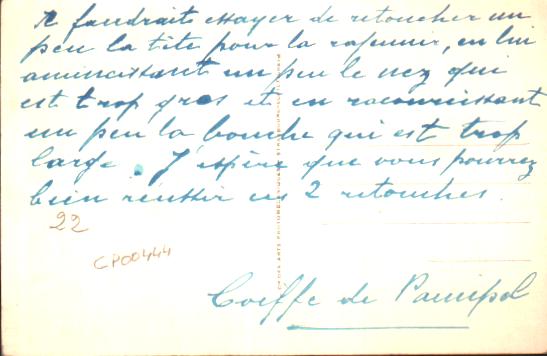 Il faudrait essayer de retoucher un
peu la tête pour la rajeunir, en lui
amincissant un peu le nez qui
est trop gros et en racourcissant
un peu la bouche qui est trop
large. J'espère que vous pourrez
bien réussir ces 2 retouches.
22
CP00444
Coiffe de Paimpol